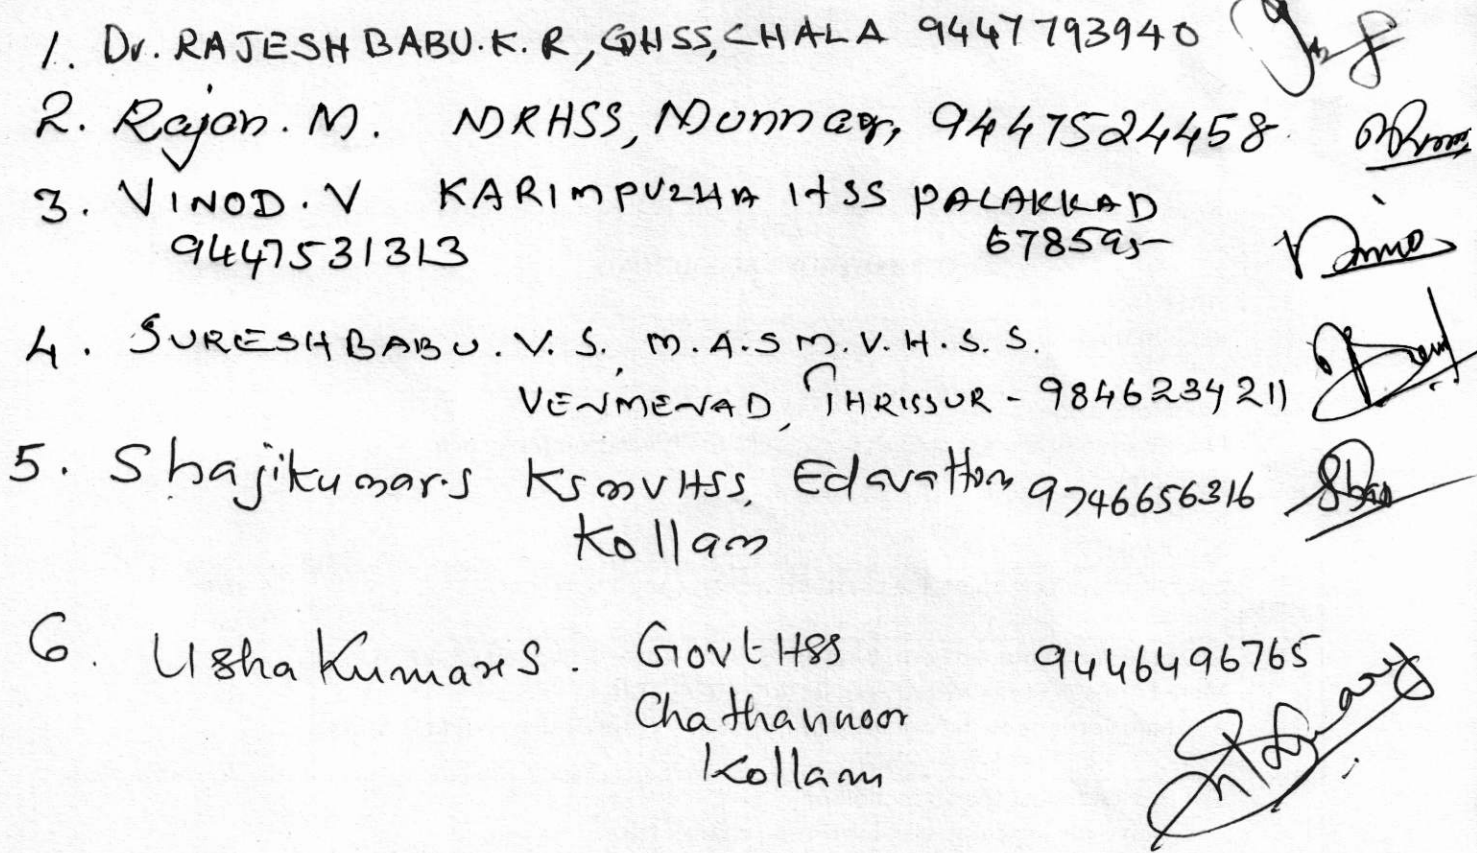 1. Dr. RAJESH BABU. K. R, GHSS, CHALA 9447793940
2. Rajan. M. NDRHSS, Munnar, 9447524458
3. VINOD. V KARIMPUZHA HSS PALAKKAD
9447531313 678595
4. SURESH BABU. V. S. M.A.S M. V. H. S. S.
VENMENAD, THRISSUR - 9846234211
5. Shajikumar.S KSMVHSS, Edavattom 9746656316
Kollam
6. Usha Kumari S. Govt HSS 9446496765
Chathannoor
Kollam